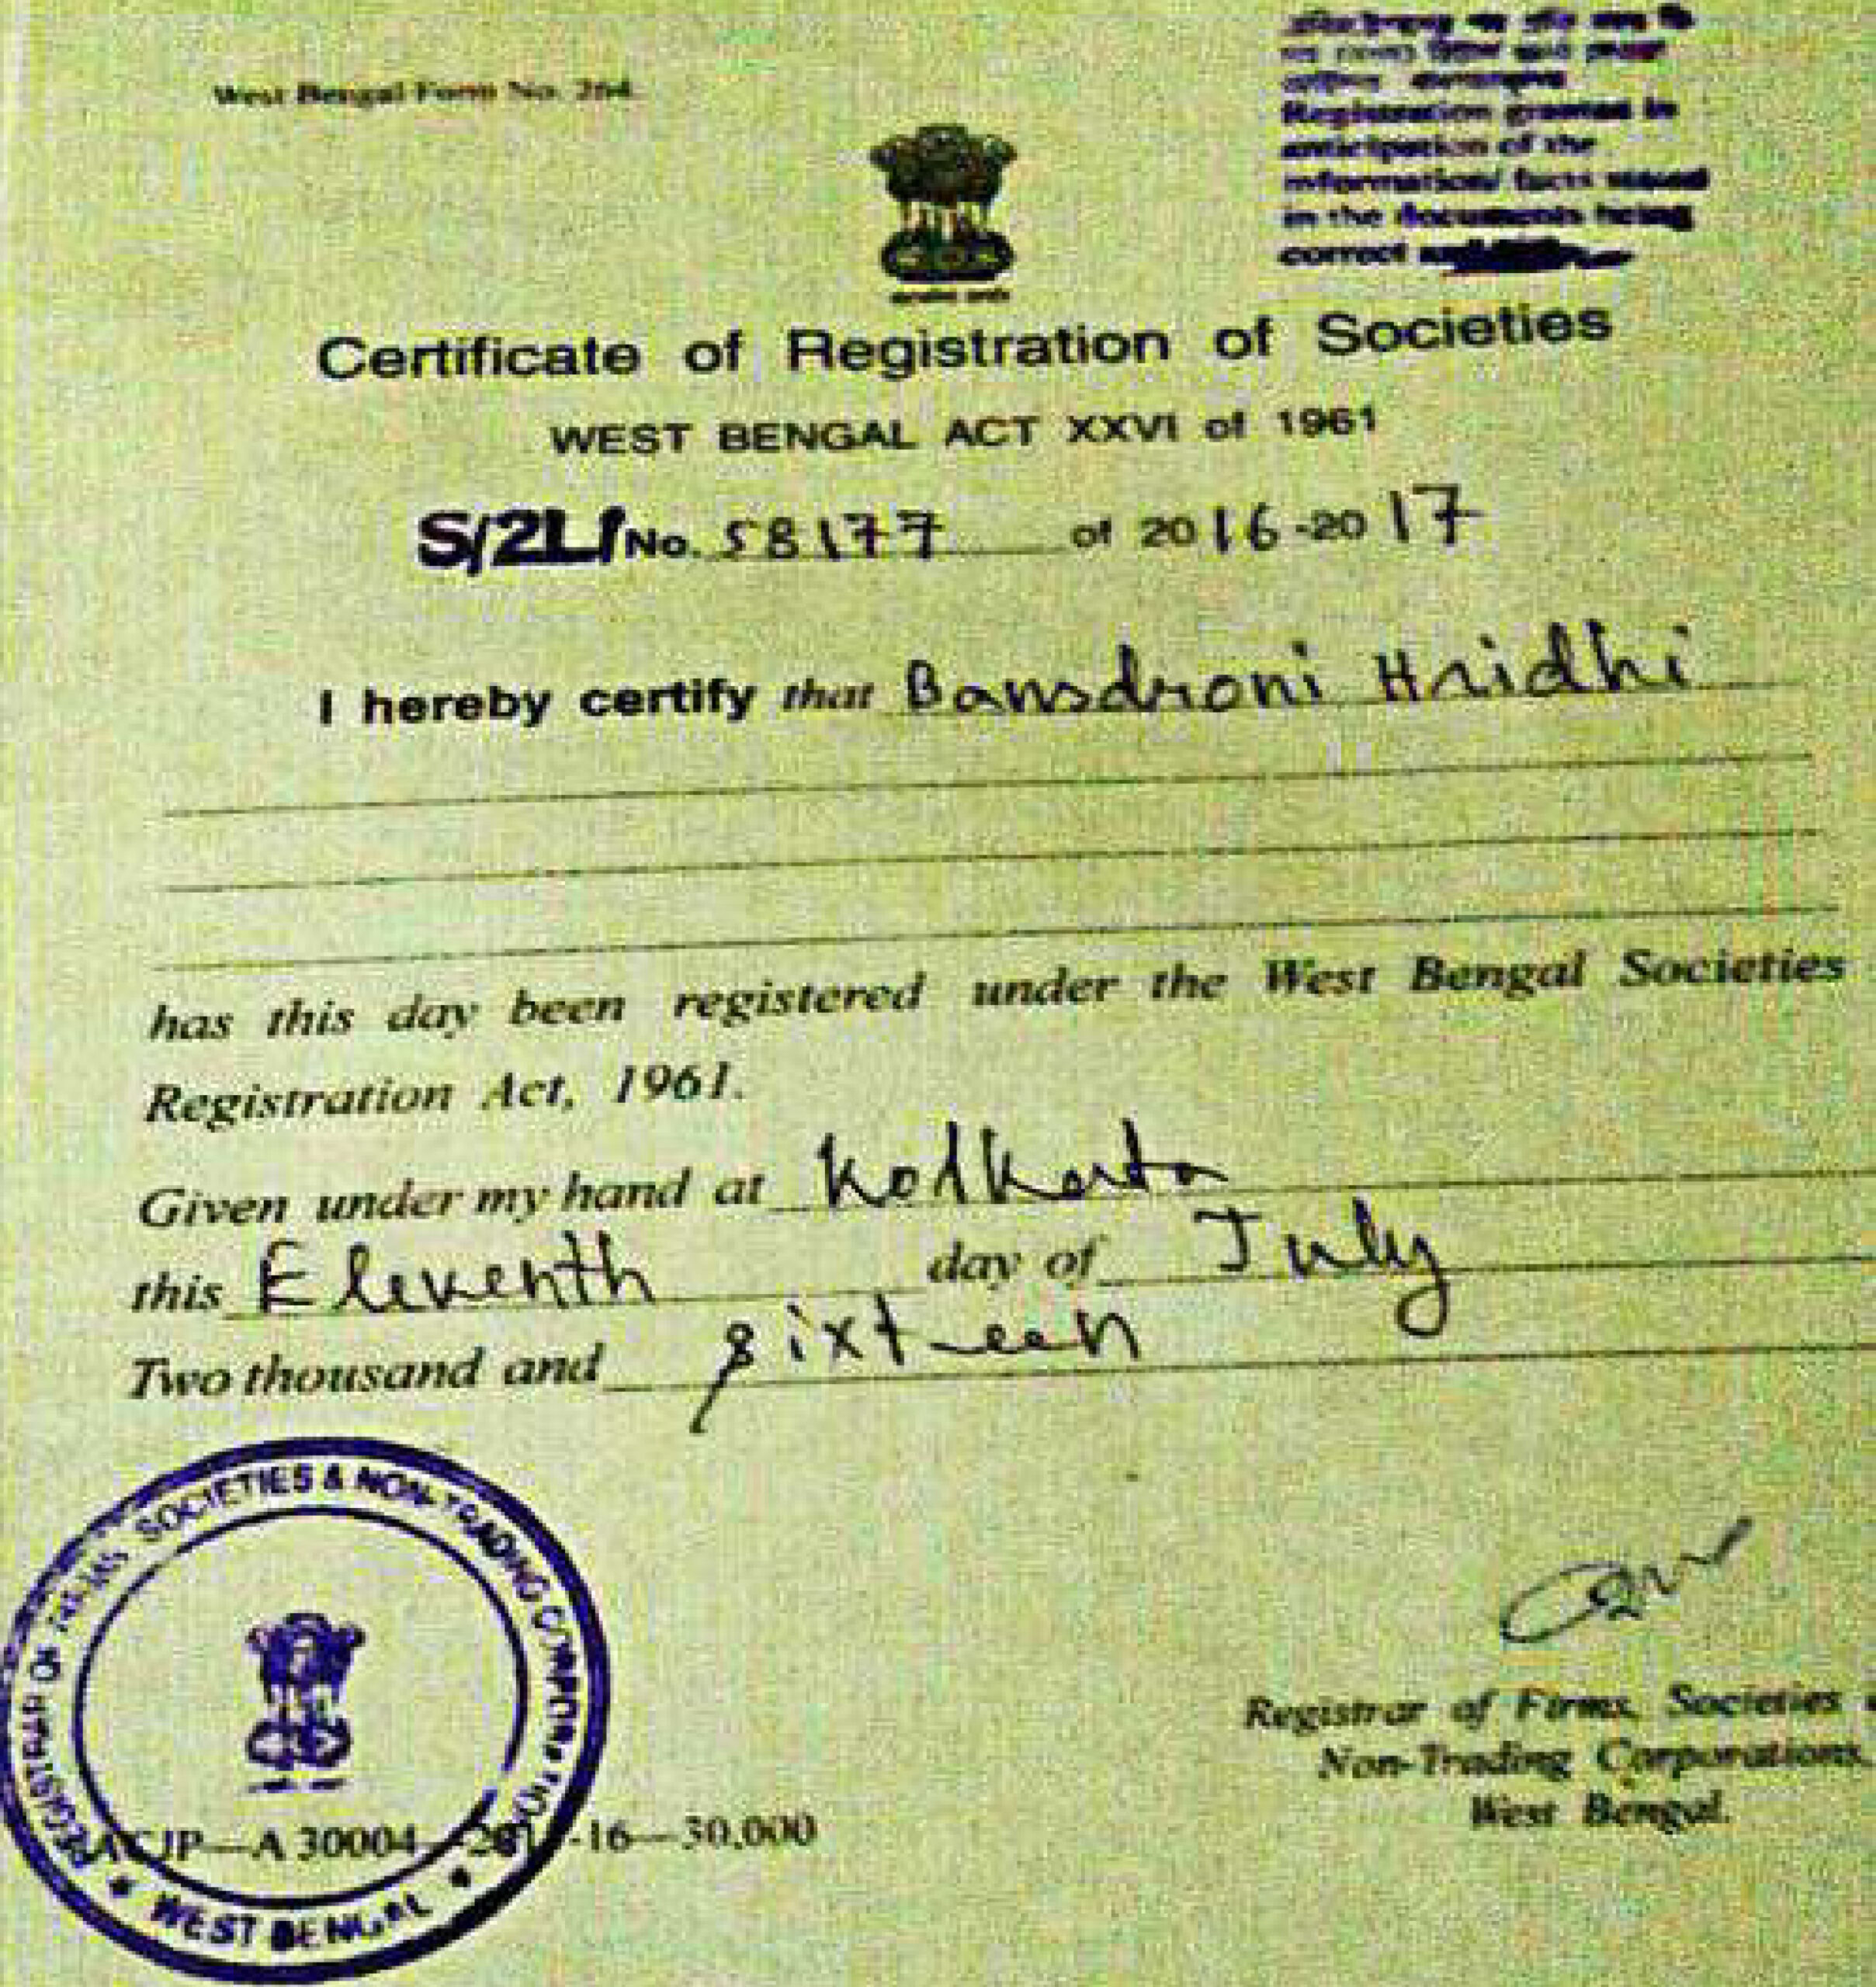 West Bengal Form No. 264
Registration granted in
anticipation of the
information/ facts stated
in the documents being
correct
Certificate of Registration of Societies
WEST BENGAL ACT XXVI of 1961
S/2L/No. 58177 of 2016-2017
I hereby certify that Bansdroni Hridhi
has this day been registered under the West Bengal Societies
Registration Act, 1961.
Given under my hand at Kolkata
this Eleventh day of July
Two thousand and sixteen
REGISTRAR OF FIRMS SOCIETIES & NON-TRADING CORPORATIONS
WEST BENGAL
Registrar of Firms, Societies
Non-Trading Corporations,
West Bengal.
A 30004 -16—30,000